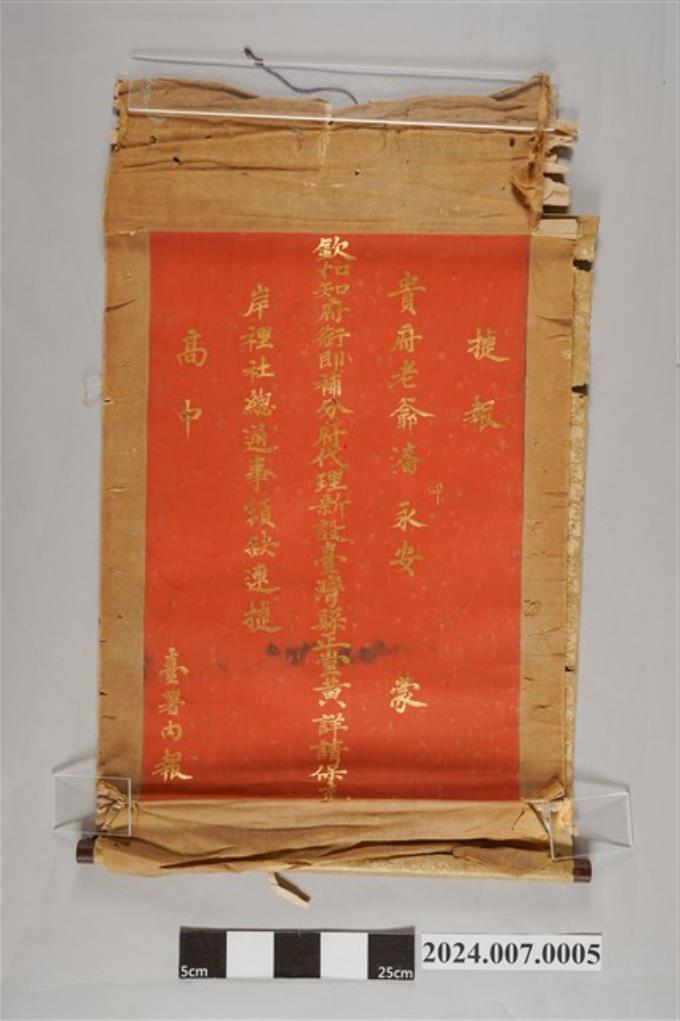 捷報
貴府老爺潘印永安 蒙
欽加知府銜即補分府代理新設臺灣縣正堂黄 詳請保
岸裡社總通事額缺連捷
高中
臺署內報
5cm
25cm
2024.007.0005